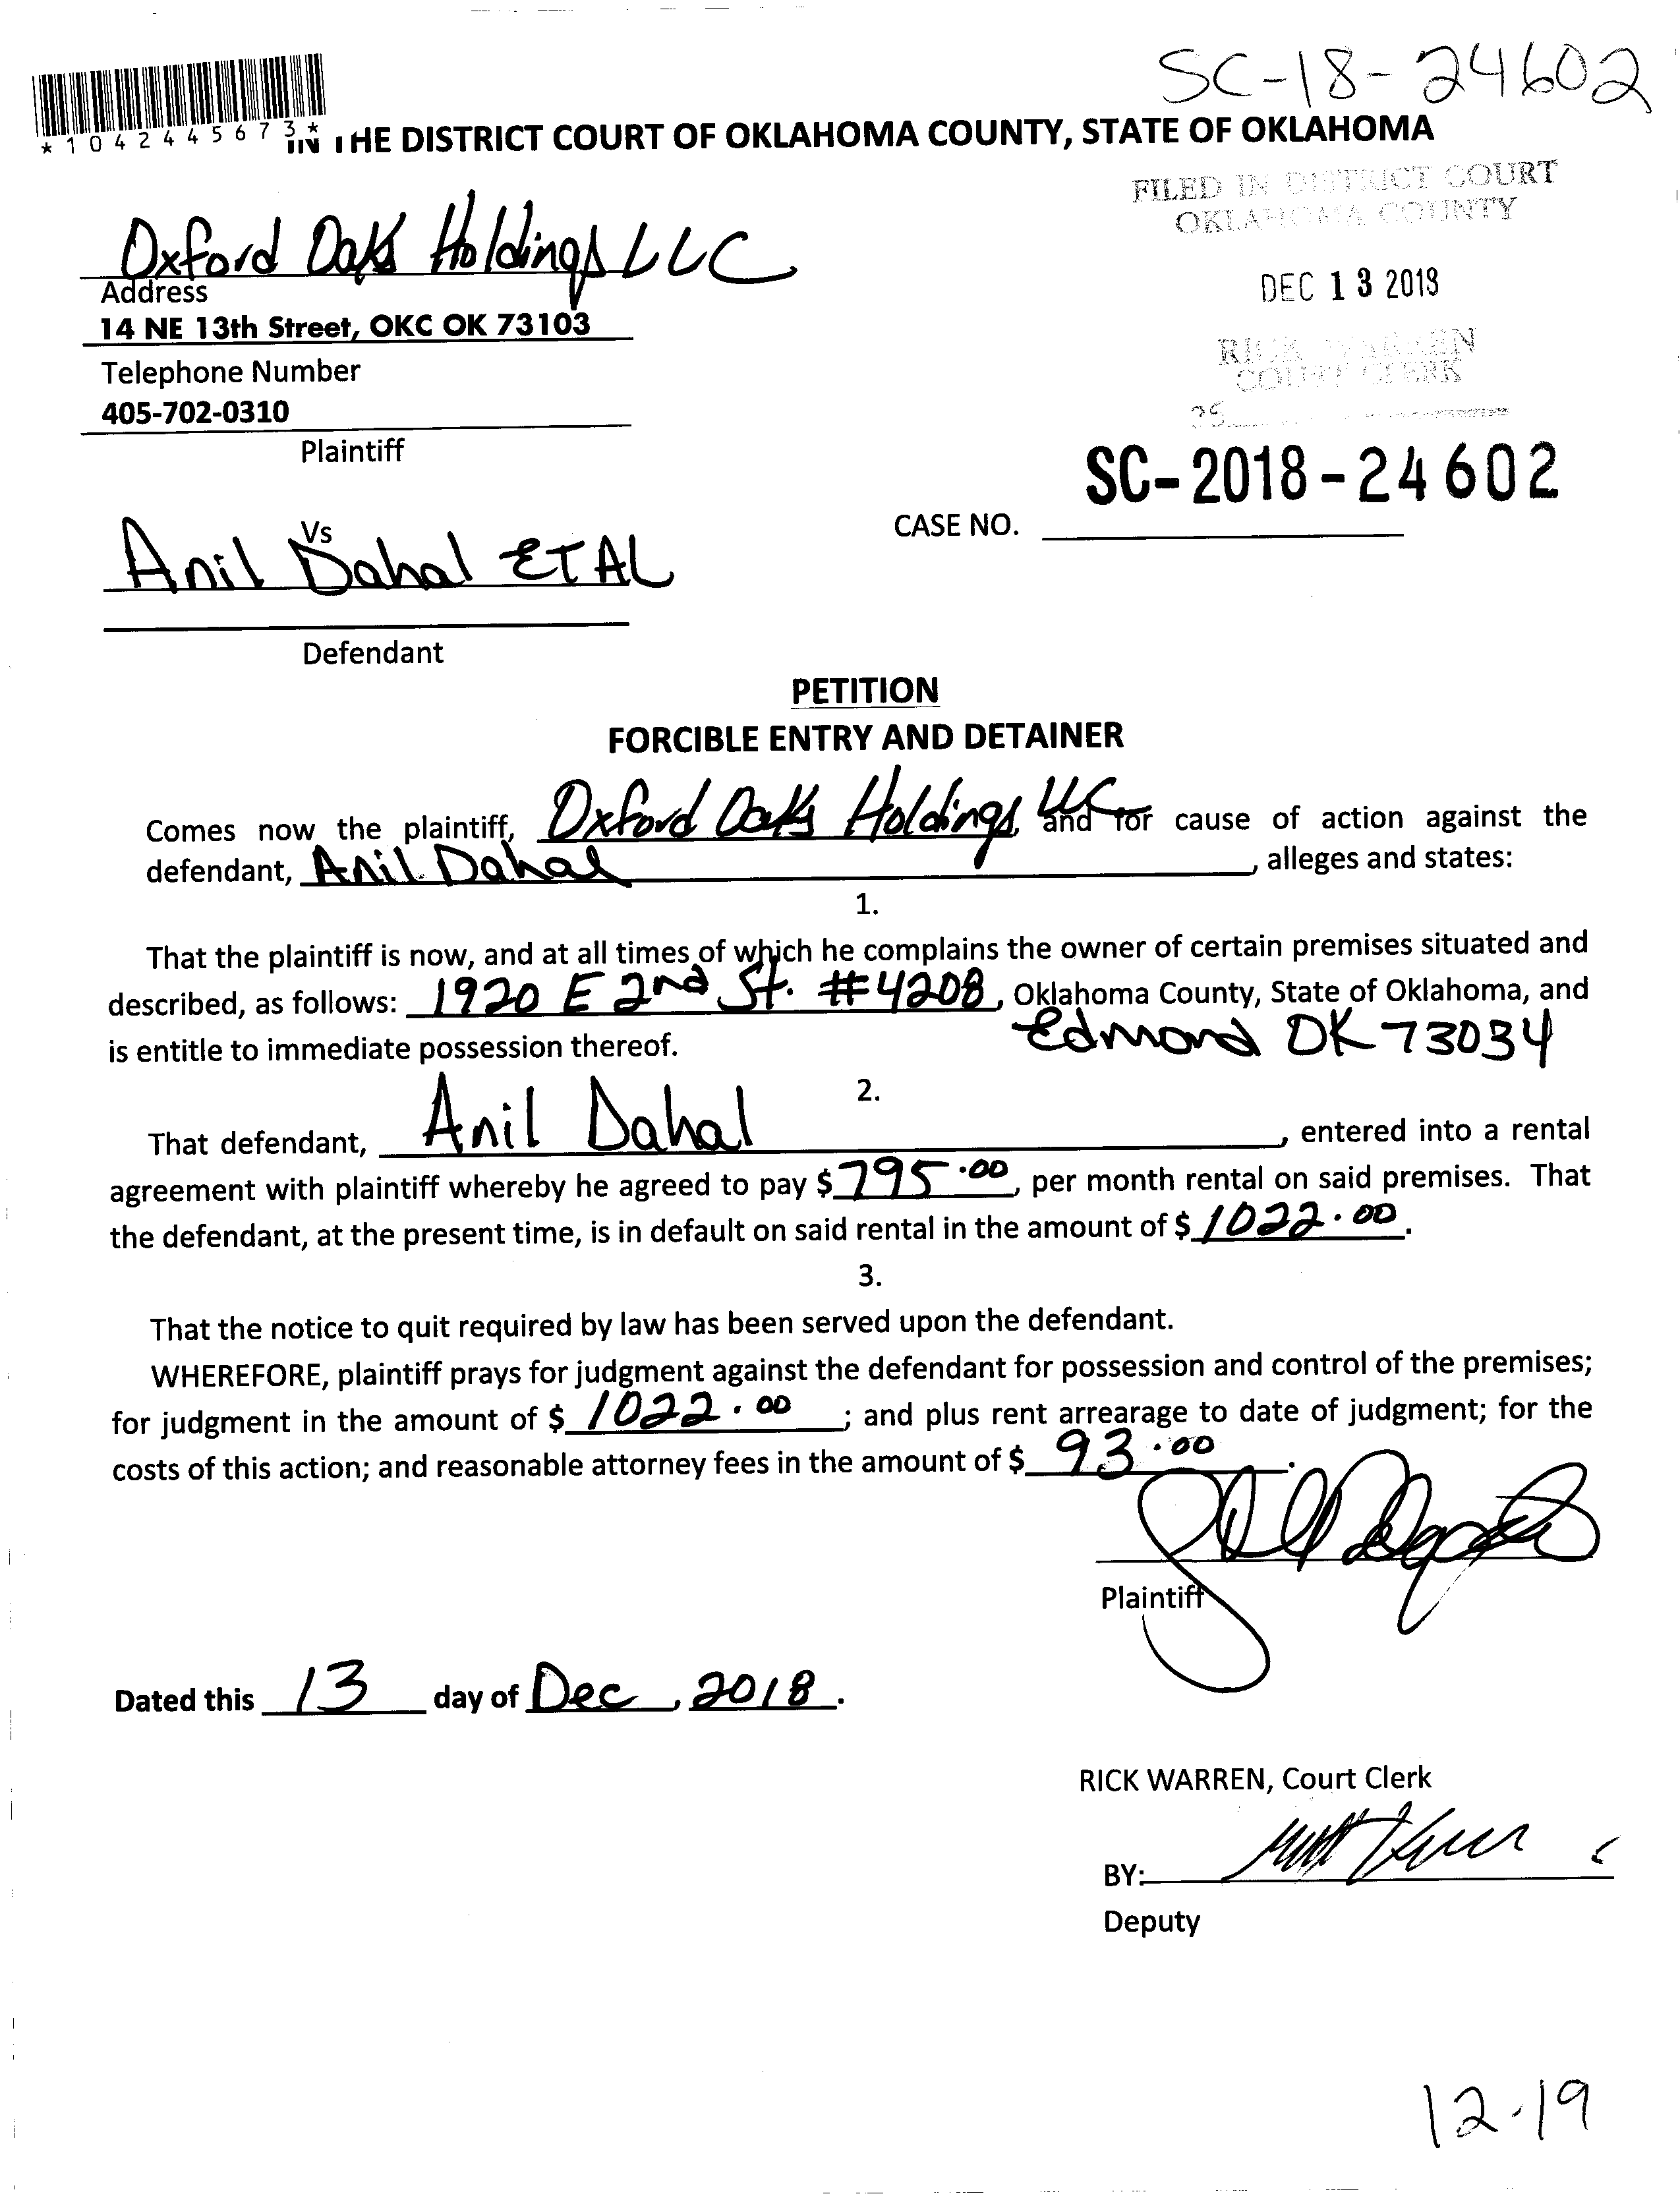 SC-18-24602
*1042445673*
IN THE DISTRICT COURT OF OKLAHOMA COUNTY, STATE OF OKLAHOMA
FILED IN DISTRICT COURT
OKLAHOMA COUNTY
Oxford Oaks Holdings LLC
Address
DEC 13 2018
14 NE 13th Street, OKC OK 73103
RICK WARREN
COURT CLERK
Telephone Number
405-702-0310
Plaintiff
SC-2018-24602
CASE NO.
Vs
Anil Dahal ET AL
Defendant
PETITION
FORCIBLE ENTRY AND DETAINER
Comes now the plaintiff, Oxford Oaks Holdings, LLC and for cause of action against the
defendant, Anil Dahal, alleges and states:
1.
That the plaintiff is now, and at all times of which he complains the owner of certain premises situated and
described, as follows: 1920 E 2nd St. #4208, Oklahoma County, State of Oklahoma, and
is entitle to immediate possession thereof. Edmond OK 73034
2.
That defendant, Anil Dahal, entered into a rental
agreement with plaintiff whereby he agreed to pay $795.00, per month rental on said premises. That
the defendant, at the present time, is in default on said rental in the amount of $1022.00.
3.
That the notice to quit required by law has been served upon the defendant.
WHEREFORE, plaintiff prays for judgment against the defendant for possession and control of the premises;
for judgment in the amount of $1022.00; and plus rent arrearage to date of judgment; for the
costs of this action; and reasonable attorney fees in the amount of $93.00.
Plaintiff
Dated this 13 day of Dec, 2018.
RICK WARREN, Court Clerk
BY:
Deputy
12-19